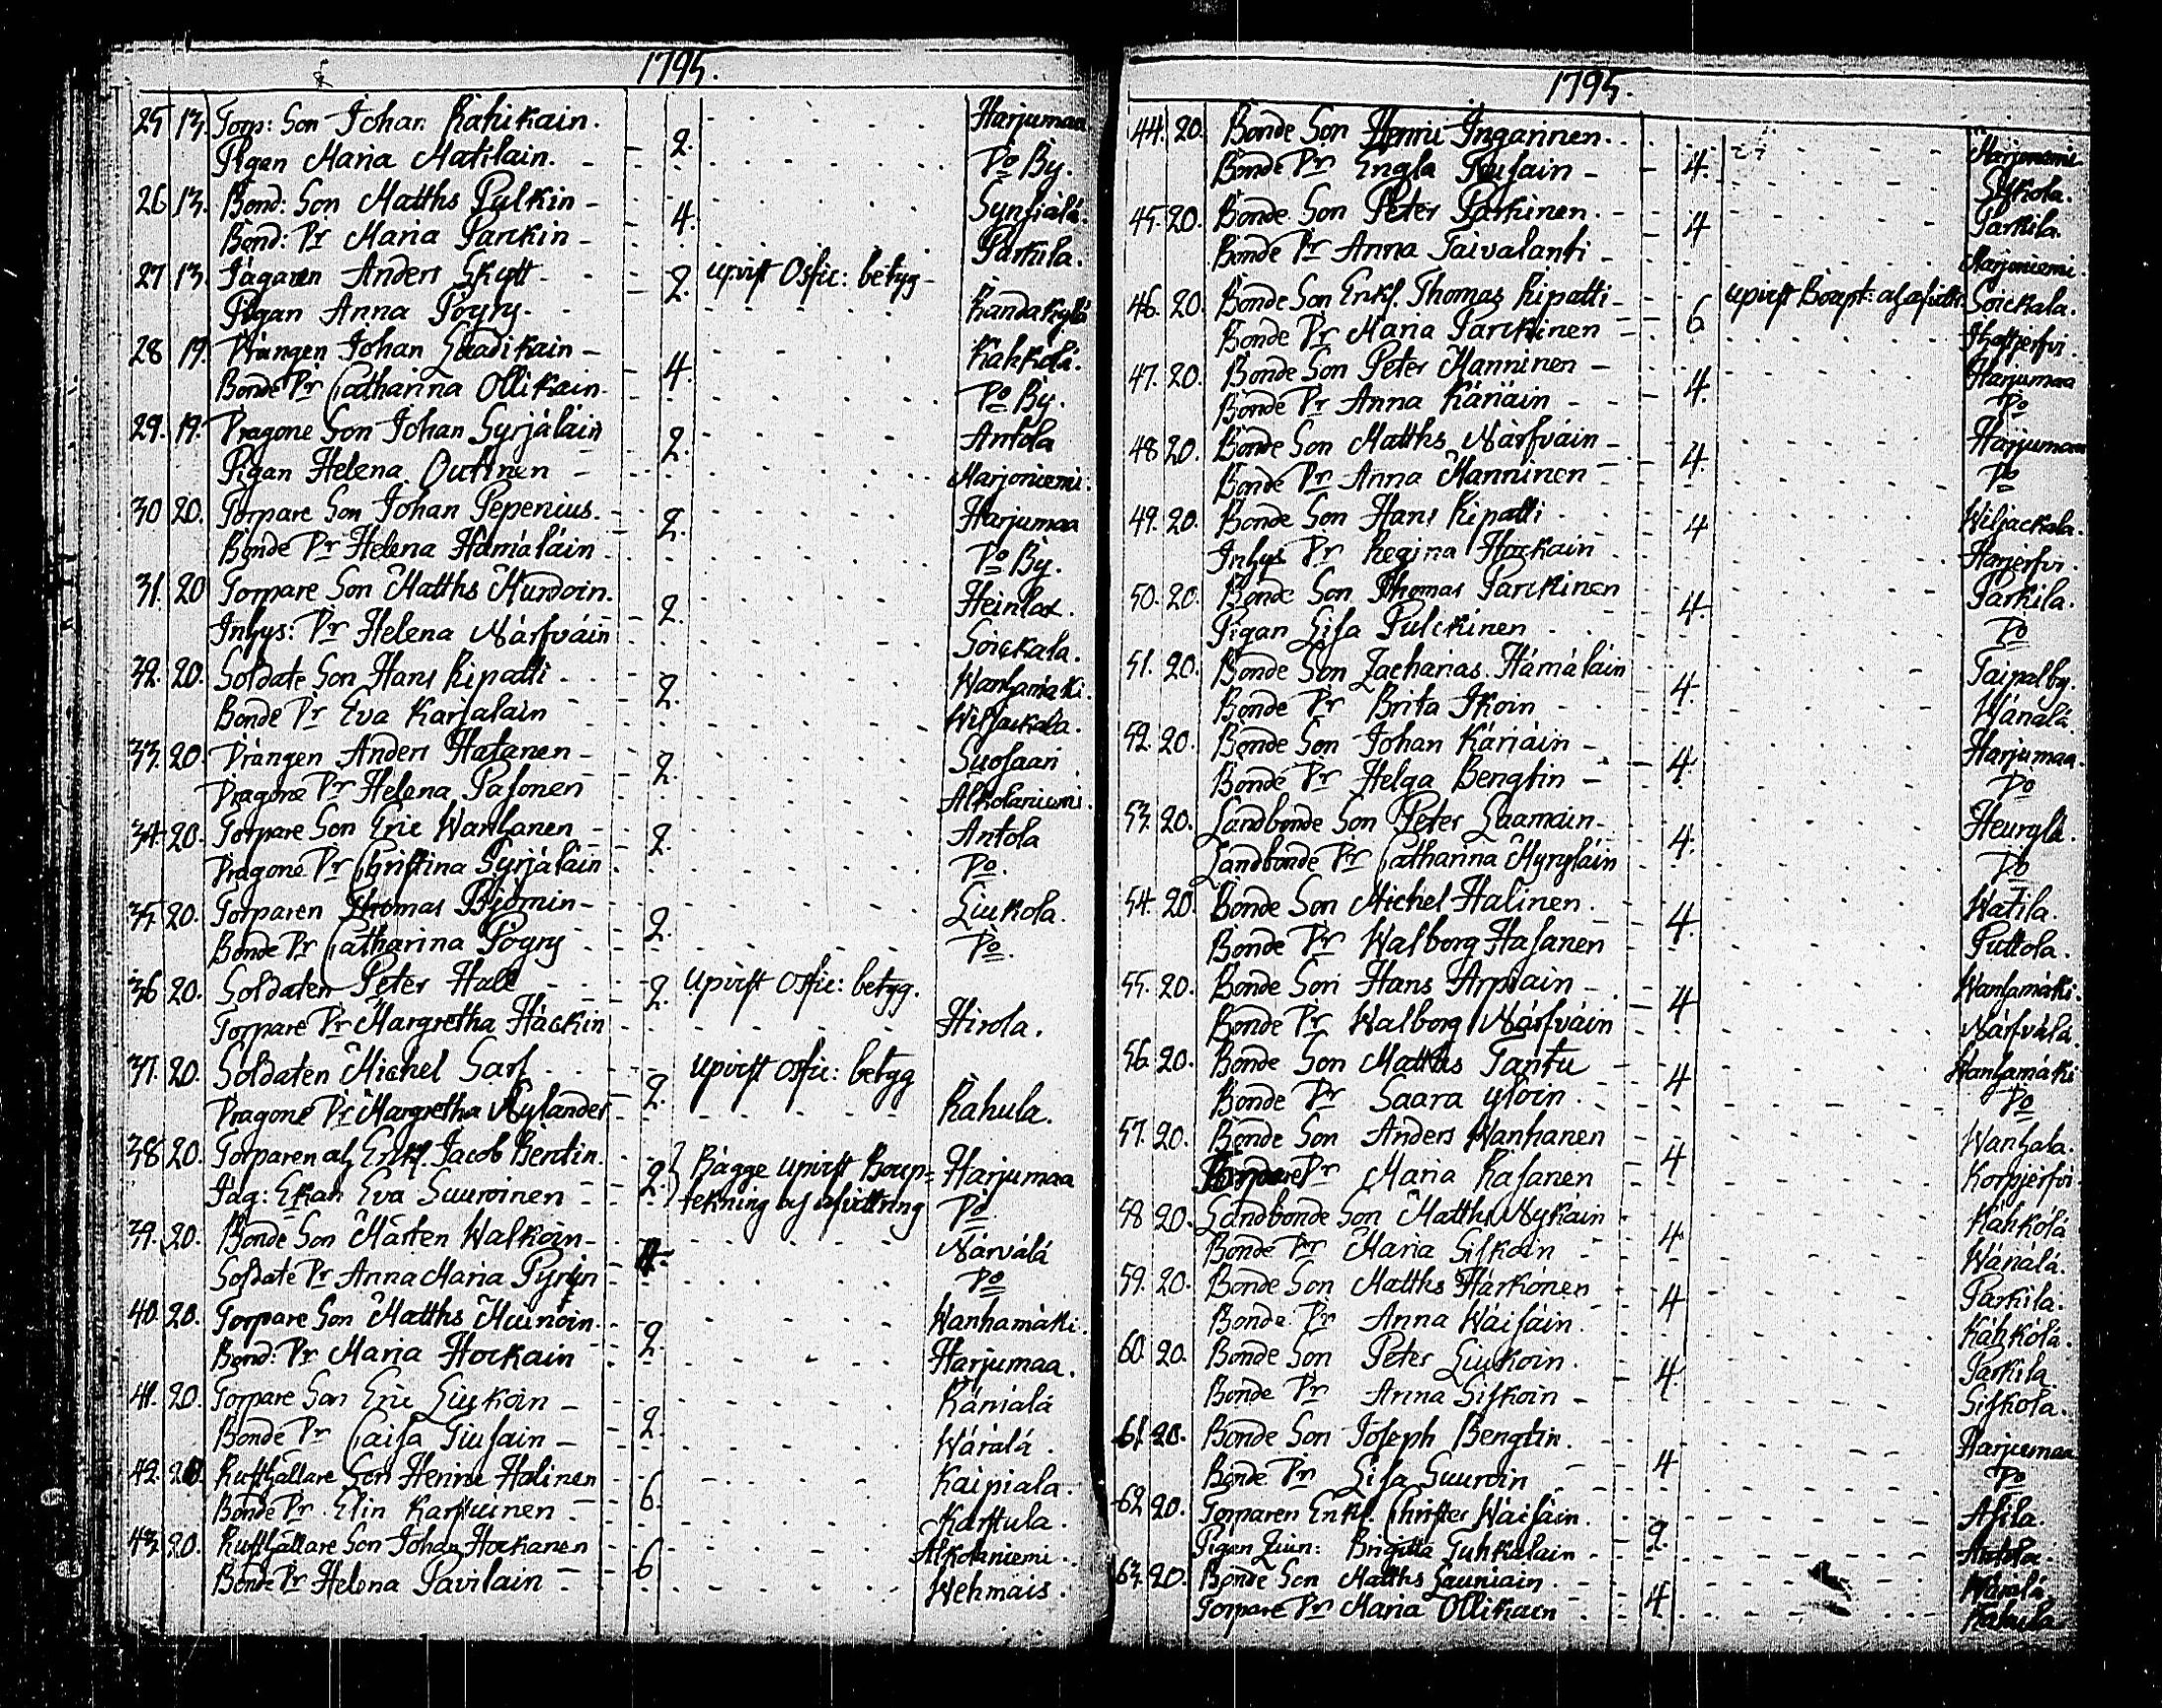 1795.
25 13. Torp: Son Johan Rahikain. Harjumaa
Pigan Maria Matilain. - 2. Do By.
26 13. Bond: Son Matths Pulkin - Synsiälä.
Bond: Dr Maria Parckin - 4. Parkila.
27 13. Jägaren Anders Skytt - upvist Offic: betyg -
Pigan Anna Pöyry. 2. Randakylä
28 19. Drängen Johan Laadikain - Kahkölä.
Bonde Dr Catharina Ollikain. 4. Do By.
29. 19. Dragone Son Johan Syrjäläin Antola
Pigan Helena Outinen - 2. Marjoniemi.
30 20. Torpare Son Johan Pepenius. Harjumaa
Bonde Dr Helena Hämäläin 2. Do By.
31. 20 Torpare Son Matths Kurvoin. Heinlax.
Inhys: Dr Helena Närfväin 2. Soickala.
32. 20. Soldate Son Hans Ripatti Wanhamäki.
Bonde Dr Eva Karjalain 2. Wiljackala.
33. 20. Drängen Anders Hasanen - Suosaari
Dragone Dr Helena Pasonen 2. Alkolaniemi.
34. 20. Torpare Son Eric Wanhanen - Antola
Dragone Dr Christina Syrjäläin 2. Do.
35 20. Torparen Thomas Björnin - Liukola.
Bonde Dr Catharina Pöyry 2. Do.
36 20. Soldaten Peter Hall upvist Offic: betyg.
Torpare Dr Margretha Häckin 2. Hirola.
37. 20. Soldaten Michel Sarf upvist Offic: betyg
Dragone Dr Margretha Nylander 2. Rahula.
38 20. Torparen och Enkl. Jacob Bentin. Bägge upvist Boup= Harjumaa
Jäg: Enkan Eva Suuroinen - 2. tekning och afvittring Do
39. 20. Bonde Son Mårten Walkoin - Närvälä
Soldate Dr Anna Maria Pyryn 4. Do
40. 20. Torpare Son Matths Muinoin. Wanhamäki.
Bond: Dr Maria Hockain 2. Harjumaa.
41. 20. Torpare Son Eric Liukoin - Käniälä
Bonde Dr Caisa Tiusain - 2. Wärälä.
42. 20. Rusthållare Son Henric Halinen Kaipiala.
Bonde Dr. Elin Karstuinen 6. Karstula.
43. 20. Rusthållare Son Johan Hockanen Alkolaniemi.
Bonde Dr Helena Pavilain 6 Wehmais.
1795.
44. 20. Bonde Son Henric Ingarinen. Marjoniemi
Bonde Dr Engla Tiusain - 4. Sifkola.
45. 20. Bonde Son Peter Parkinen. Parkila.
Bonde Dr Anna Taivalanti - 4 Marjoniemi.
46. 20. Bonde Son Enkl. Thomas Ripatti - upvist Boupt: och afvittr. Soickala.
Bonde Dr Maria Parckinen 6.
47. 20. Bonde Son Peter Manninen - Harjumaa
Bonde Dr Anna Käriäin - 4. Do
48 20. Bonde Son Matths Närfväin - Harjumaa
Bonde Dr Anna Manninen 4. Do
49. 20. Bonde Son Hans Ripatti Wiljackala.
Inhys Dr Regina Hockain 4 Harjerfvi.
50. 20. Bonde Son Thomas Parckinen Parkila.
Pigan Lisa Pulckinen 4. Do
51. 20. Bonde Son Zacharias Hämäläin Taipalby.
Bonde Dr Brita Ikoin 4. Wänälä
52. 20. Bonde Son Johan Käriäin - Harjumaa.
Bonde Dr Helga Bengtin - 4. Do
53. 20. Landbonde Son Peter Laamain - Heurylä.
Landbonde Dr Catharina Myryläin 4. Do
54. 20. Bonde Son Michel Halinen. Watila.
Bonde Dr Walborg Hasanen 4. Puttola.
55. 20. Bonde Son Hans Arpiain - Wanhamäki.
Bonde Dr Walborg Närfväin 4 Närfvälä.
56. 20. Bonde Son Matths Tanttu Wanhamäki
Bonde Dr Saara Ylöin. 4 Do
57. 20. Bonde Son Anders Wanhanen Wanhala.
Dr Maria Rasanen 4 Korpjerfvi.
58 20. Landbonde Son Matths Nykäin Kähkölä
Bonde Dr Maria Sifkoin 4. Wänälä.
59. 20. Bonde Son Matths Härkönen Parkila.
Bonde Dr Anna Wäisäin. 4 Kähkölä.
60. 20. Bonde Son Peter Liukoin. Parkila.
Bonde Dr Anna Sifkoin - 4. Sifkola.
61. 20. Bonde Son Joseph Bengtin. Harjumaa
Bonde Dr Lisa Suuroin 4 Do
62 20. Torparen Enkl. Christer Wäisäin. Asila.
Pigan Brigitta Tuhkalain 2. Antola.
63. 20. Bonde Son Matths Launiain. Wärälä
Torpare Dr Maria Ollikain 4. Rahula